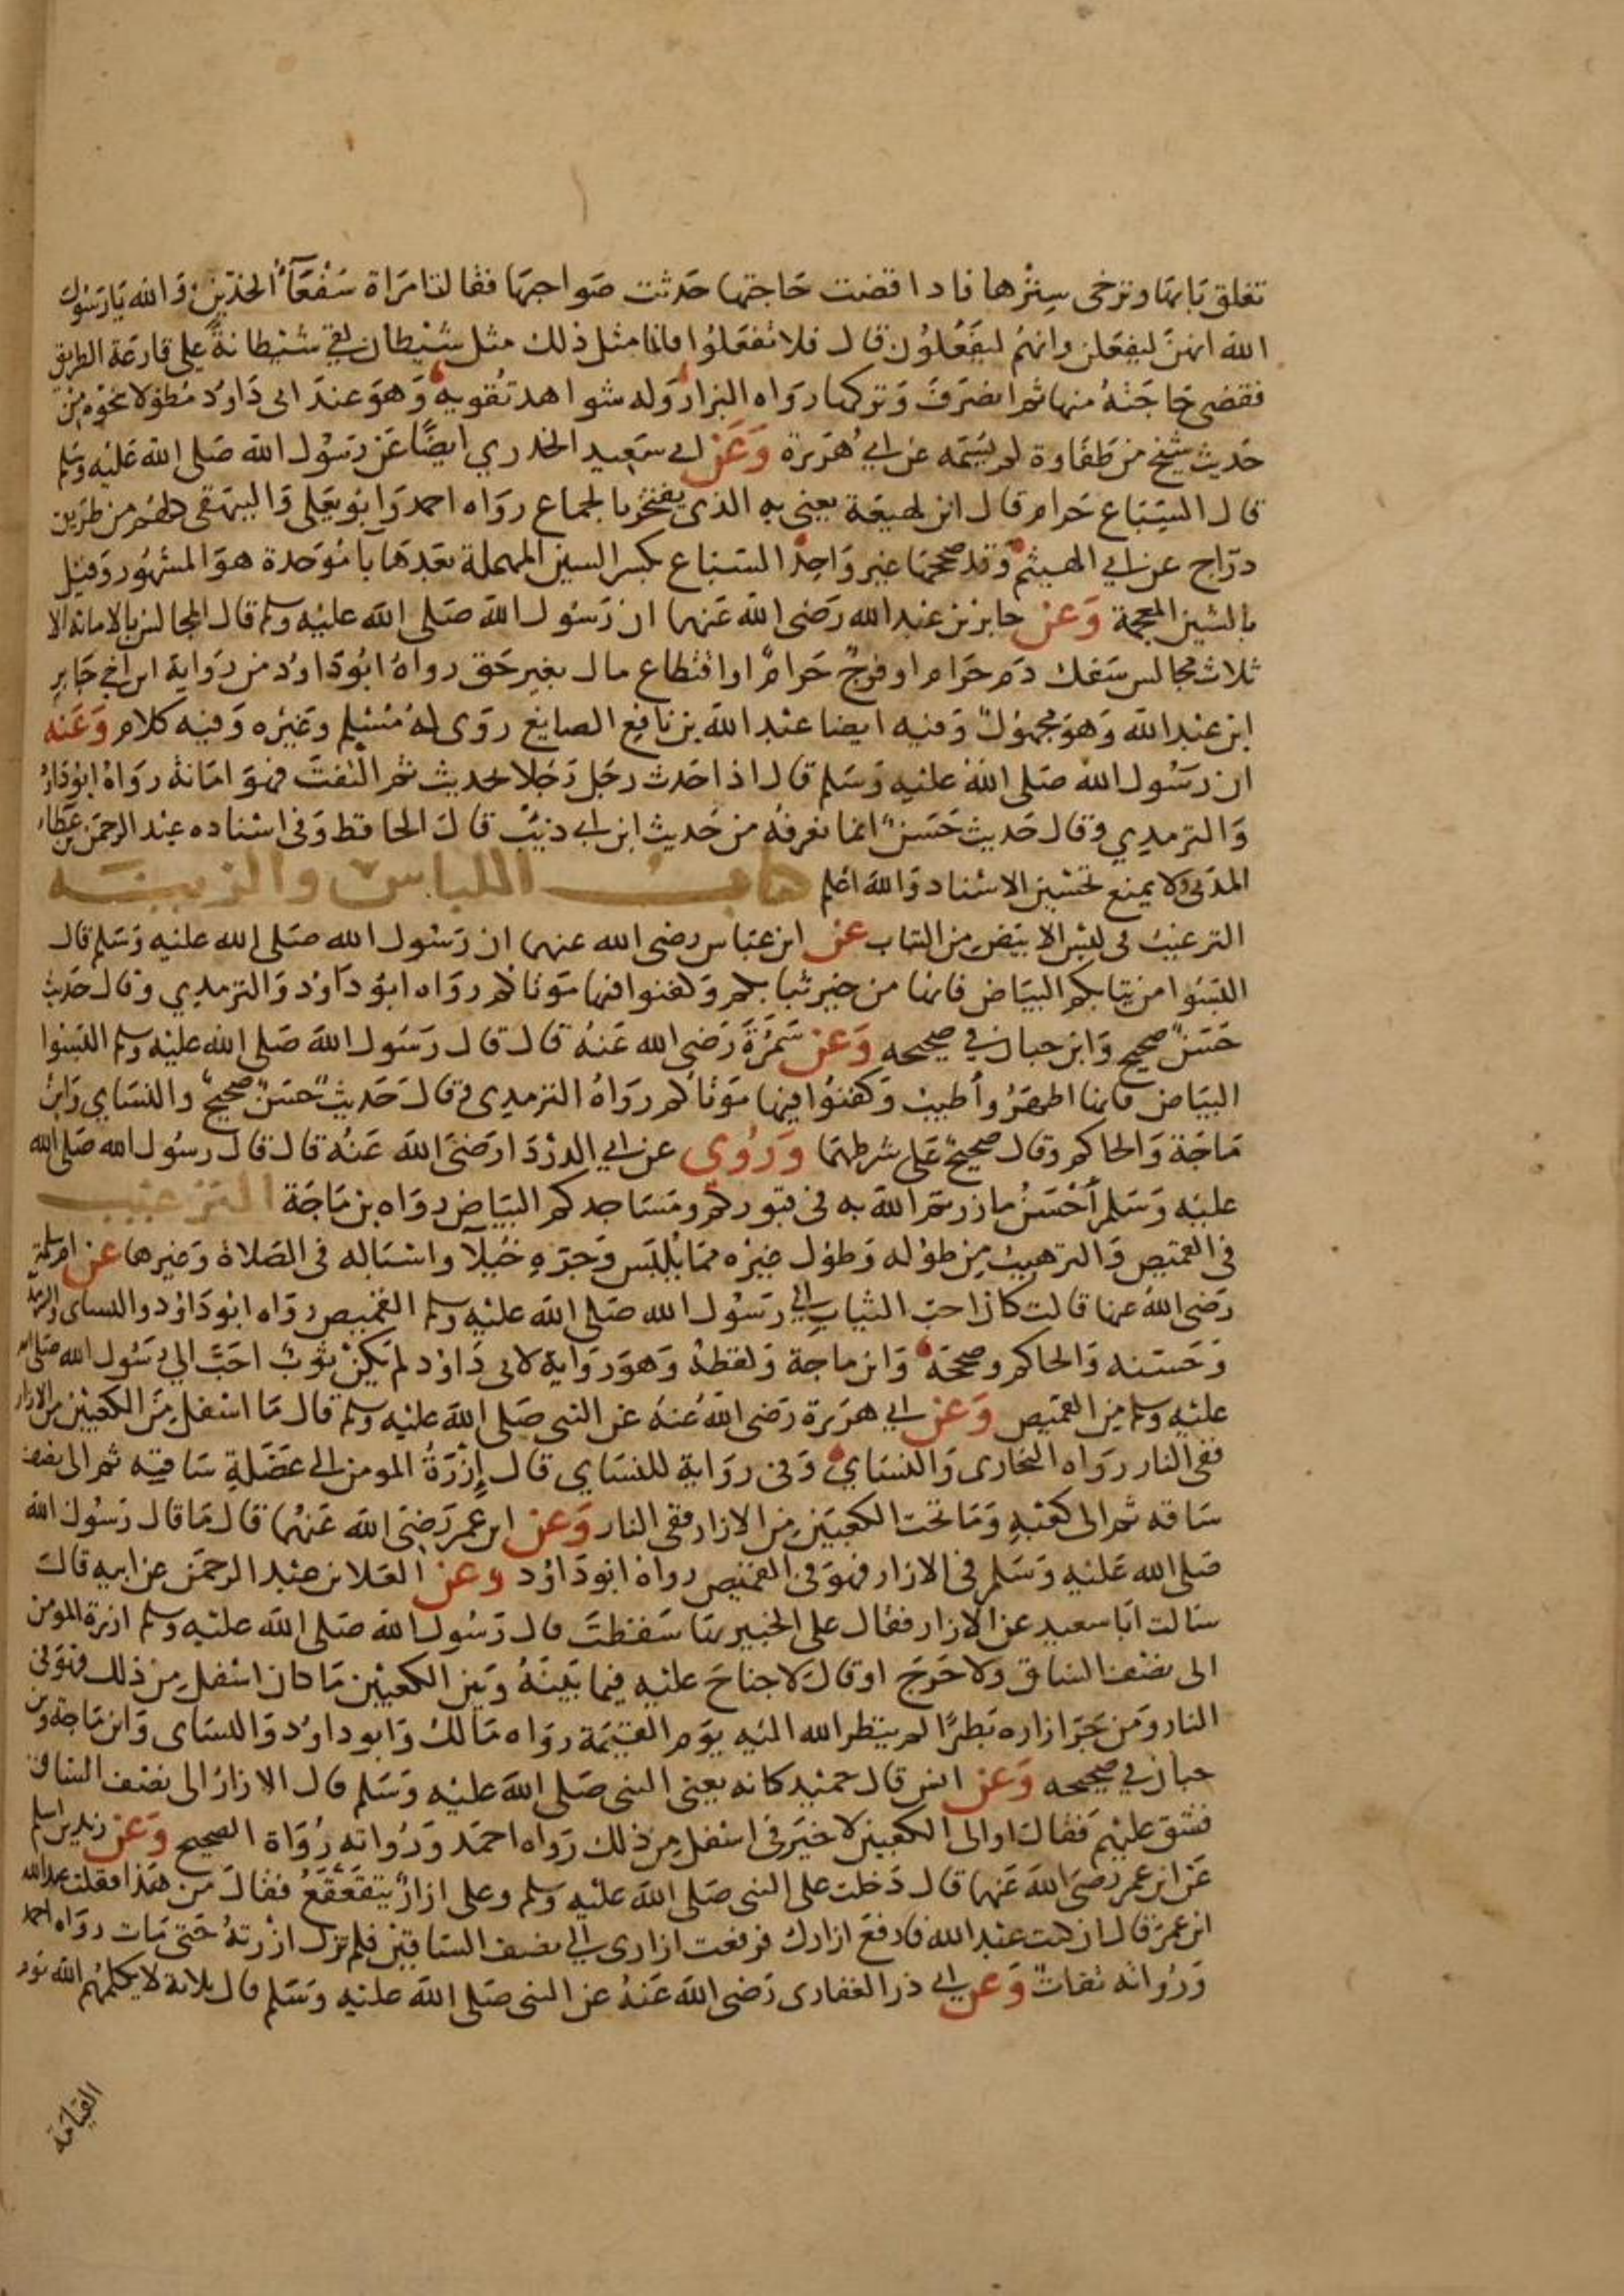 تغلق بابها وترخى سترها فاذا قضت حاجتها حدثت صواحبها فقالت امراة سَفْعَآءُ الخدّين والله يا رسول
الله انهن ليفعلن وانهم ليفعلون قال فلا تفعلوا فانما مثل ذلك مثل شيطان لقي شيطانةً على قارعة الطريق
فقضى حاجته منها ثم انصرف وتركها رواه البزار وله شواهد تقويه وهو عند ابى داود مطولا بنحوه من
حديث شيخ من طفاوة لم يسمه عن ابي هريرة وَعَن ابي سعيد الخدري ايضًا عن رسول الله صلى الله عليه وسلم
قال السِّبَاع حرام قال ابن لهيعة يعنى به الذي يفتخر بالجماع رواه احمد وابو يعلى والبيهقى كلهم من طريق
درّاج عن ابي الهيثم وقد صححها غير واحد السباع بكسر السين المهملة بعدها با موحدة هو المشهور وقيل
بالشين المعجمة وَعَن جابر بن عبد الله رضى الله عنهما ان رسول الله صلى الله عليه وسلم قال المجالس بالامانة الا
ثلاث مجالس سفك دم حرام او فرجٌ حرامٌ او اقتطاع مال بغير حق رواه ابو داود من رواية ابن اخي جابر
ابن عبد الله وهو مجهولٌ وفيه ايضا عبد الله بن نافع الصايغ روى له مسلم وغيره وفيه كلام وَعَنه
ان رسول الله صلى الله عليه وسلم قال اذا حدث رجل رجلا بحديث ثم التفت فهو امانة رواه ابو داود
والترمدي وقال حديث حسنٌ انما نعرفه من حديث ابن ابي ذيب قال الحافظ وفى اسناده عبد الرحمن بن عطاء
المدنى ولا يمنع تحسين الاسناد والله اعلم كتاب اللباس والزينه
الترغيب فى لبس الابيض من الثياب عن ابن عباس رضى الله عنهما ان رسول الله صلى الله عليه وسلم قال
البسوا من ثيابكم البياض فانها من خير ثيابكم وكفنوا فيها موتاكم رواه ابو داود والترمدي وقال حديث
حسنٌ صحيح وابن حبان في صحيحه وَعَن سَمُرَةَ رضى الله عنه قال قال رسول الله صلى الله عليه وسلم البسوا
البياض فانها اطهر وأطيب وكفنوا فيها موتاكم رواه الترمدى وقال حديث حسنٌ صحيحٌ والنساي وابن
ماجة والحاكم وقال صحيح على شرطهما وَرُوي عن ابي الدردا رضى الله عنه قال قال رسول الله صلى الله
عليه وسلم أَحْسَنُ ما زرتم الله به فى قبوركم ومساجدكم البياض رواه بن ماجة الترغيب
فى القميص والترهيب من طوله وطول غيره مما يُلبس وجرّه خيلآ واسباله فى الصلاة وغيرها عن ام سلمة
رضى الله عنها قالت كان احب الثياب الي رسول الله صلى الله عليه وسلم القميص رواه ابو داود والنساى والترمذ
وحسنه والحاكم وصححه وابن ماجة ولفظه وهو رواية لابى داود لم يكن ثوب احبّ الي رسول الله صلى الله
عليه وسلم من القميص وَعَن ابي هريرة رضى الله عنه عن النبى صلى الله عليه وسلم قال ما اسفل من الكعبين من الازار
ففى النار رواه البخارى والنساي وفى رواية للنساي قال إِزْرَةُ المومن الى عَضَلةِ ساقيه ثم الى نصف
ساقه ثم الى كعبه وما تحت الكعبين من الازار ففى النار وَعَن ابن عمر رضى الله عنهما قال ما قال رسول الله
صلى الله عليه وسلم فى الازار فهو فى القميص رواه ابو داود وعن العلا بن عبد الرحمن عن ابيه قال
سالت ابا سعيد عن الازار فقال على الخبير بها سقطت قال رسول الله صلى الله عليه وسلم ازرة المومن
الى نصف الساق ولا حرج او قال لا جناح عليه فيما بينه وبين الكعبين ما كان اسفل من ذلك فهو فى
النار ومن جر ازاره بطرًا لم ينظر الله اليه يوم القيمة رواه مالك وابو داود والنساى وابن ماجة وبن
حبان في صحيحه وَعَن انس قال حميد كانه يعنى النبى صلى الله عليه وسلم قال الازار الى نصف الساق
فشق عليهم فقال او الى الكعبين لا خير فى اسفل من ذلك رواه احمد ورواته رواة الصحيح وَعَن زيد بن اسلم
عن ابن عمر رضى الله عنهما قال دخلت على النبى صلى الله عليه وسلم وعلى ازارٌ يتقعقع فقال من هذا فقلت عبد الله
ابن عمر قال ان كنت عبد الله فارفع ازارك فرفعت ازارى الي نصف الساقين فلم تزل ازرته حتى مات رواه احمد
ورواته ثقاتٌ وَعَن ابي ذر الغفارى رضى الله عنه عن النبى صلى الله عليه وسلم قال ثلاثة لا يكلمهم الله يوم
القيامة